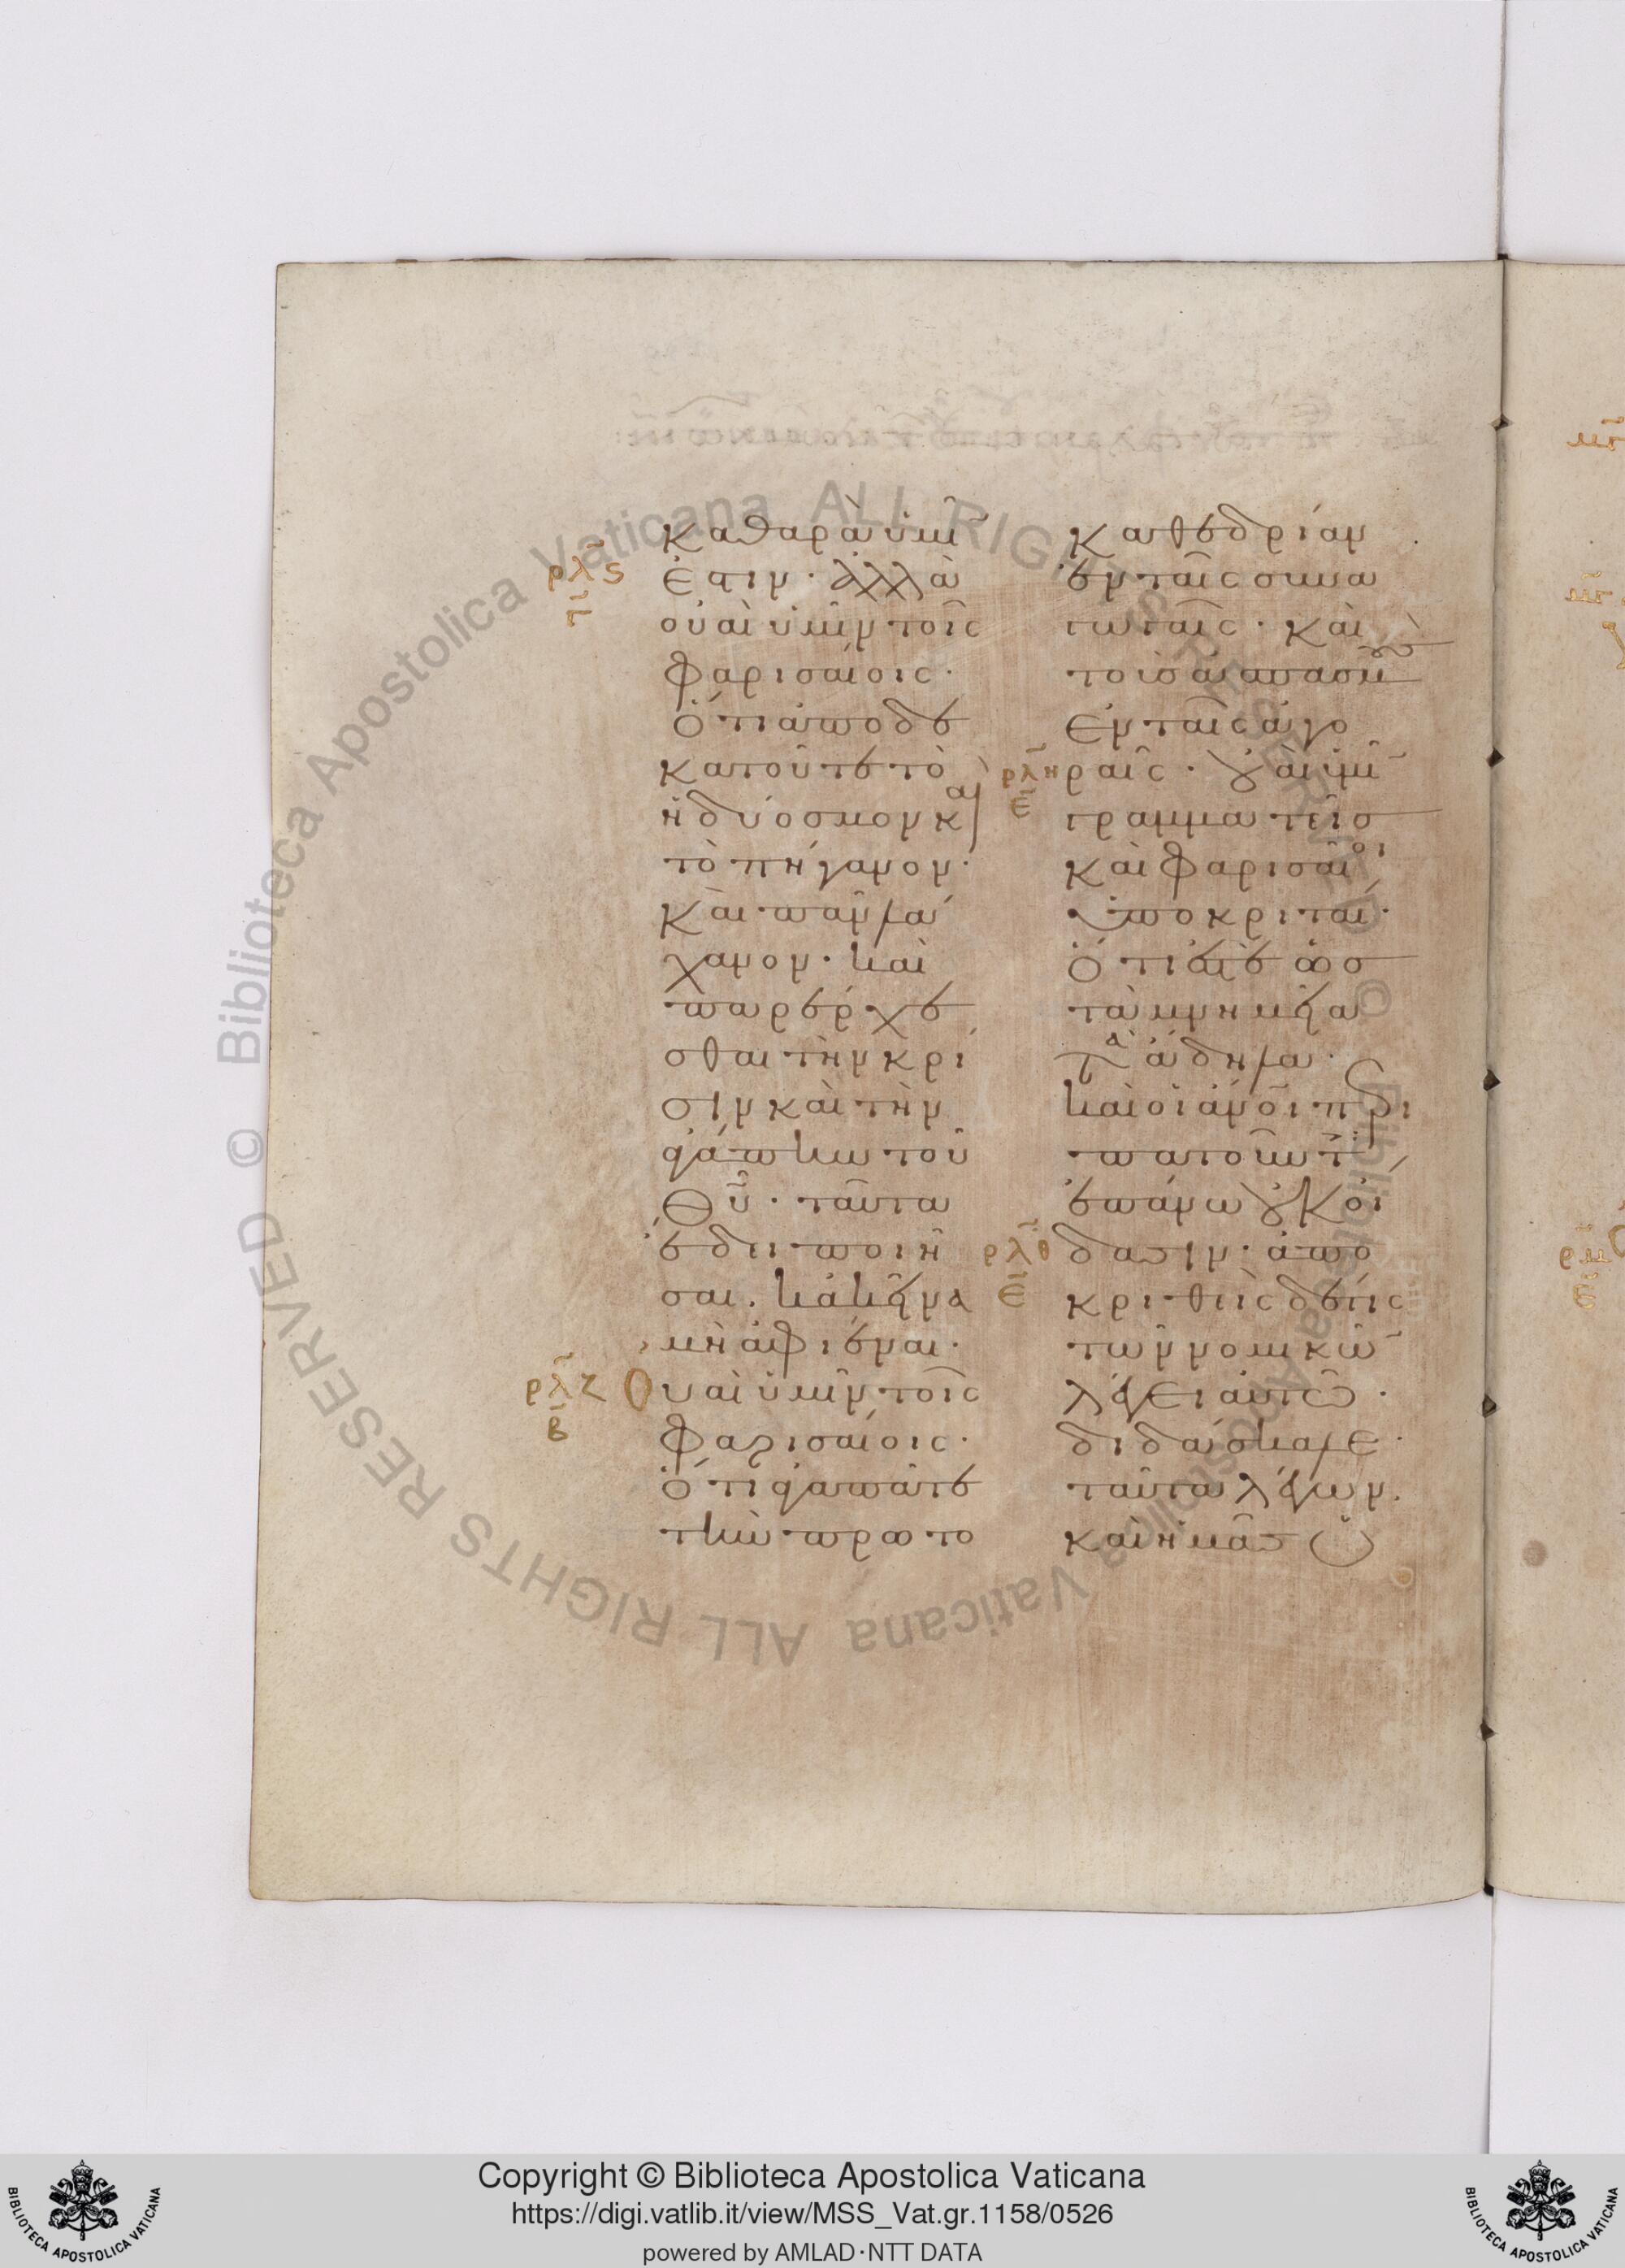 καθαρὰ ὑμῖ
ρλς
η
ἐστιν· ἀλλὰ
οὐαὶ ὑμῖν τοῖς
φαρισαίοις·
ὅτι ἀποδε
κατοῦτε τὸ
ἡδύοσμον καὶ
τὸ πήγανον·
καὶ πᾶν λά
χανον· καὶ
παρέρχε
σθαι τὴν κρί
σιν καὶ τὴν
ἀγάπην τοῦ
Θῦ· ταῦτα
ἔδει ποιῆ
σαι. κἀκεῖνα
μὴ ἀφιέναι·
ρλζ
β
Οὐαὶ ὑμῖν τοῖς
φαρισαίοις·
ὅτι ἀγαπᾶτε
τὴν πρωτο
καθεδρίαν
ἐν ταῖς συνα
γωγαῖς· καὶ
τοὺς ἀσπασμοὺς
ἐν ταῖς ἀγο
ρλη
ε
ραῖς· οὐαὶ ὑμῖ
γραμματεῖσ
καὶ φαρισαῖοι
ὑποκριταί·
ὅτι ἐστὲ ὡσ
τὰ μνημεῖα
τὰ ἄδηλα·
καὶ οἱ ἄνοι περι
πατοῦντ
ἐπάνω οὐκ οἴ
ρλθ
ε
δασιν· ἀπο
κριθεὶς δέ τις
τῶν νομικῶ
λέγει αὐτῶ·
διδάσκαλε·
ταῦτα λέγων.
καὶ ἡμᾶσ ὑ
Copyright © Biblioteca Apostolica Vaticana
https://digi.vatlib.it/view/MSS_Vat.gr.1158/0526
powered by AMLAD·NTT DATA
BIBLIOTECA APOSTOLICA VATICANA
BIBLIOTECA APOSTOLICA VATICANA
© Biblioteca Apostolica Vaticana ALL RIGHTS RESERVED
© Biblioteca Apostolica Vaticana ALL RIGHTS RESERVED